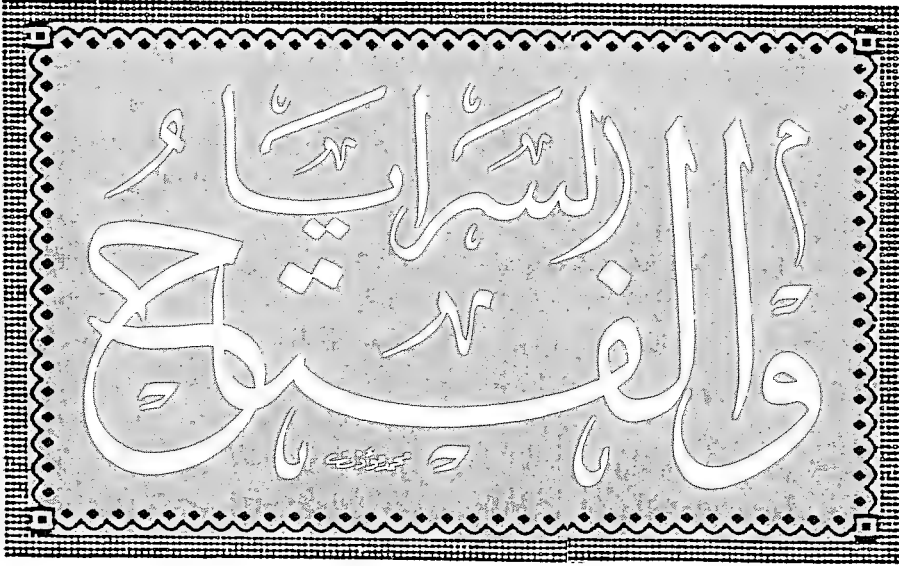 السَّرايا
والفتوح